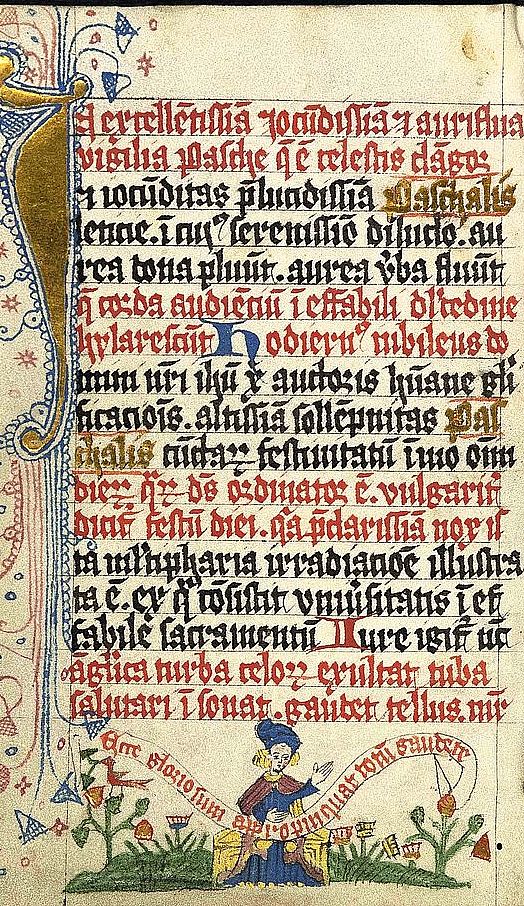 excellētissīa ⁊ jocūdissīa ⁊ auriflua
vigilia Pasche q̄ ē celestis clāgor
⁊ iocūditas p̄lucidissīa Paschalis
lencie. ī cuiꝰ serenissīo diluclo. au
rea dona pluūt. aurea v̄ba fluūt
q̄ corda audiēciū īeffabili dl̄cedine
hylarescūt Hodiernꝰ iubileus do
mini nr̄i ih̄u xp̄ auctoris hūane gl̄i
ficaciois. altissīa sollēpnitas Pas
chalis cūctaꝝ festiuitatū īmo om̄i
dieꝝ q̄ꝝ dn̄s ordinator ē. vulgarit̄
dicit᷑ festū diei. q̄a p̄clarissīa nox is
ta ml̄tipharia irradiatōe illustra
ta ē. ex q̄ cōsistit vniūsitatis īef
fabile sacramentū Iure igit᷑ nūc
āglica turba celoꝝ exultat tuba
salutari īsonat. gaudet tellus. mr̄
Ecce gloriosum appropinquat totū gaudete